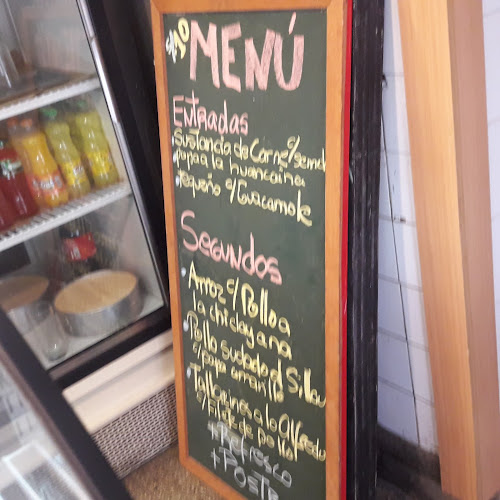 S/10
MENÚ
ENTRADAS
Sustancia de Carne c/semol
papa a la huancaina
Tequeño c/Guacamole
SEGUNDOS
Arroz c/Pollo a
la chiclayana
Pollo sudado al Sillau
c/papa amarilla
Tallarines a lo Alfredo
c/filete de pollo
+Refresco
+Postre